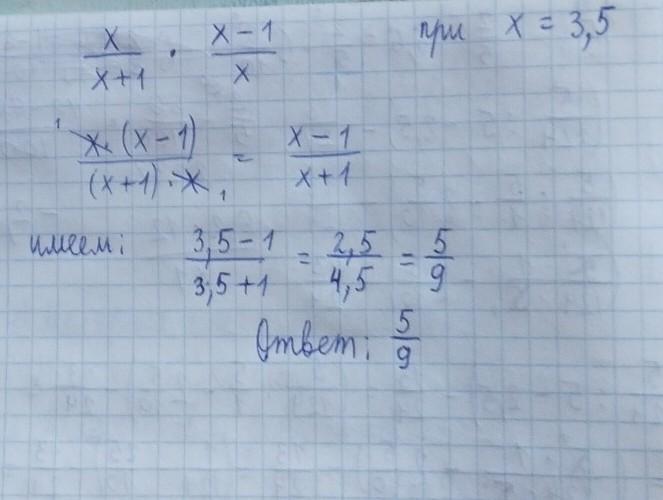 x/(x+1) · (x-1)/x при x = 3,5
1 x·(x-1)/((x+1)·x) 1 = (x-1)/(x+1)
имеем: (3,5-1)/(3,5+1) = 2,5/4,5 = 5/9
Ответ: 5/9